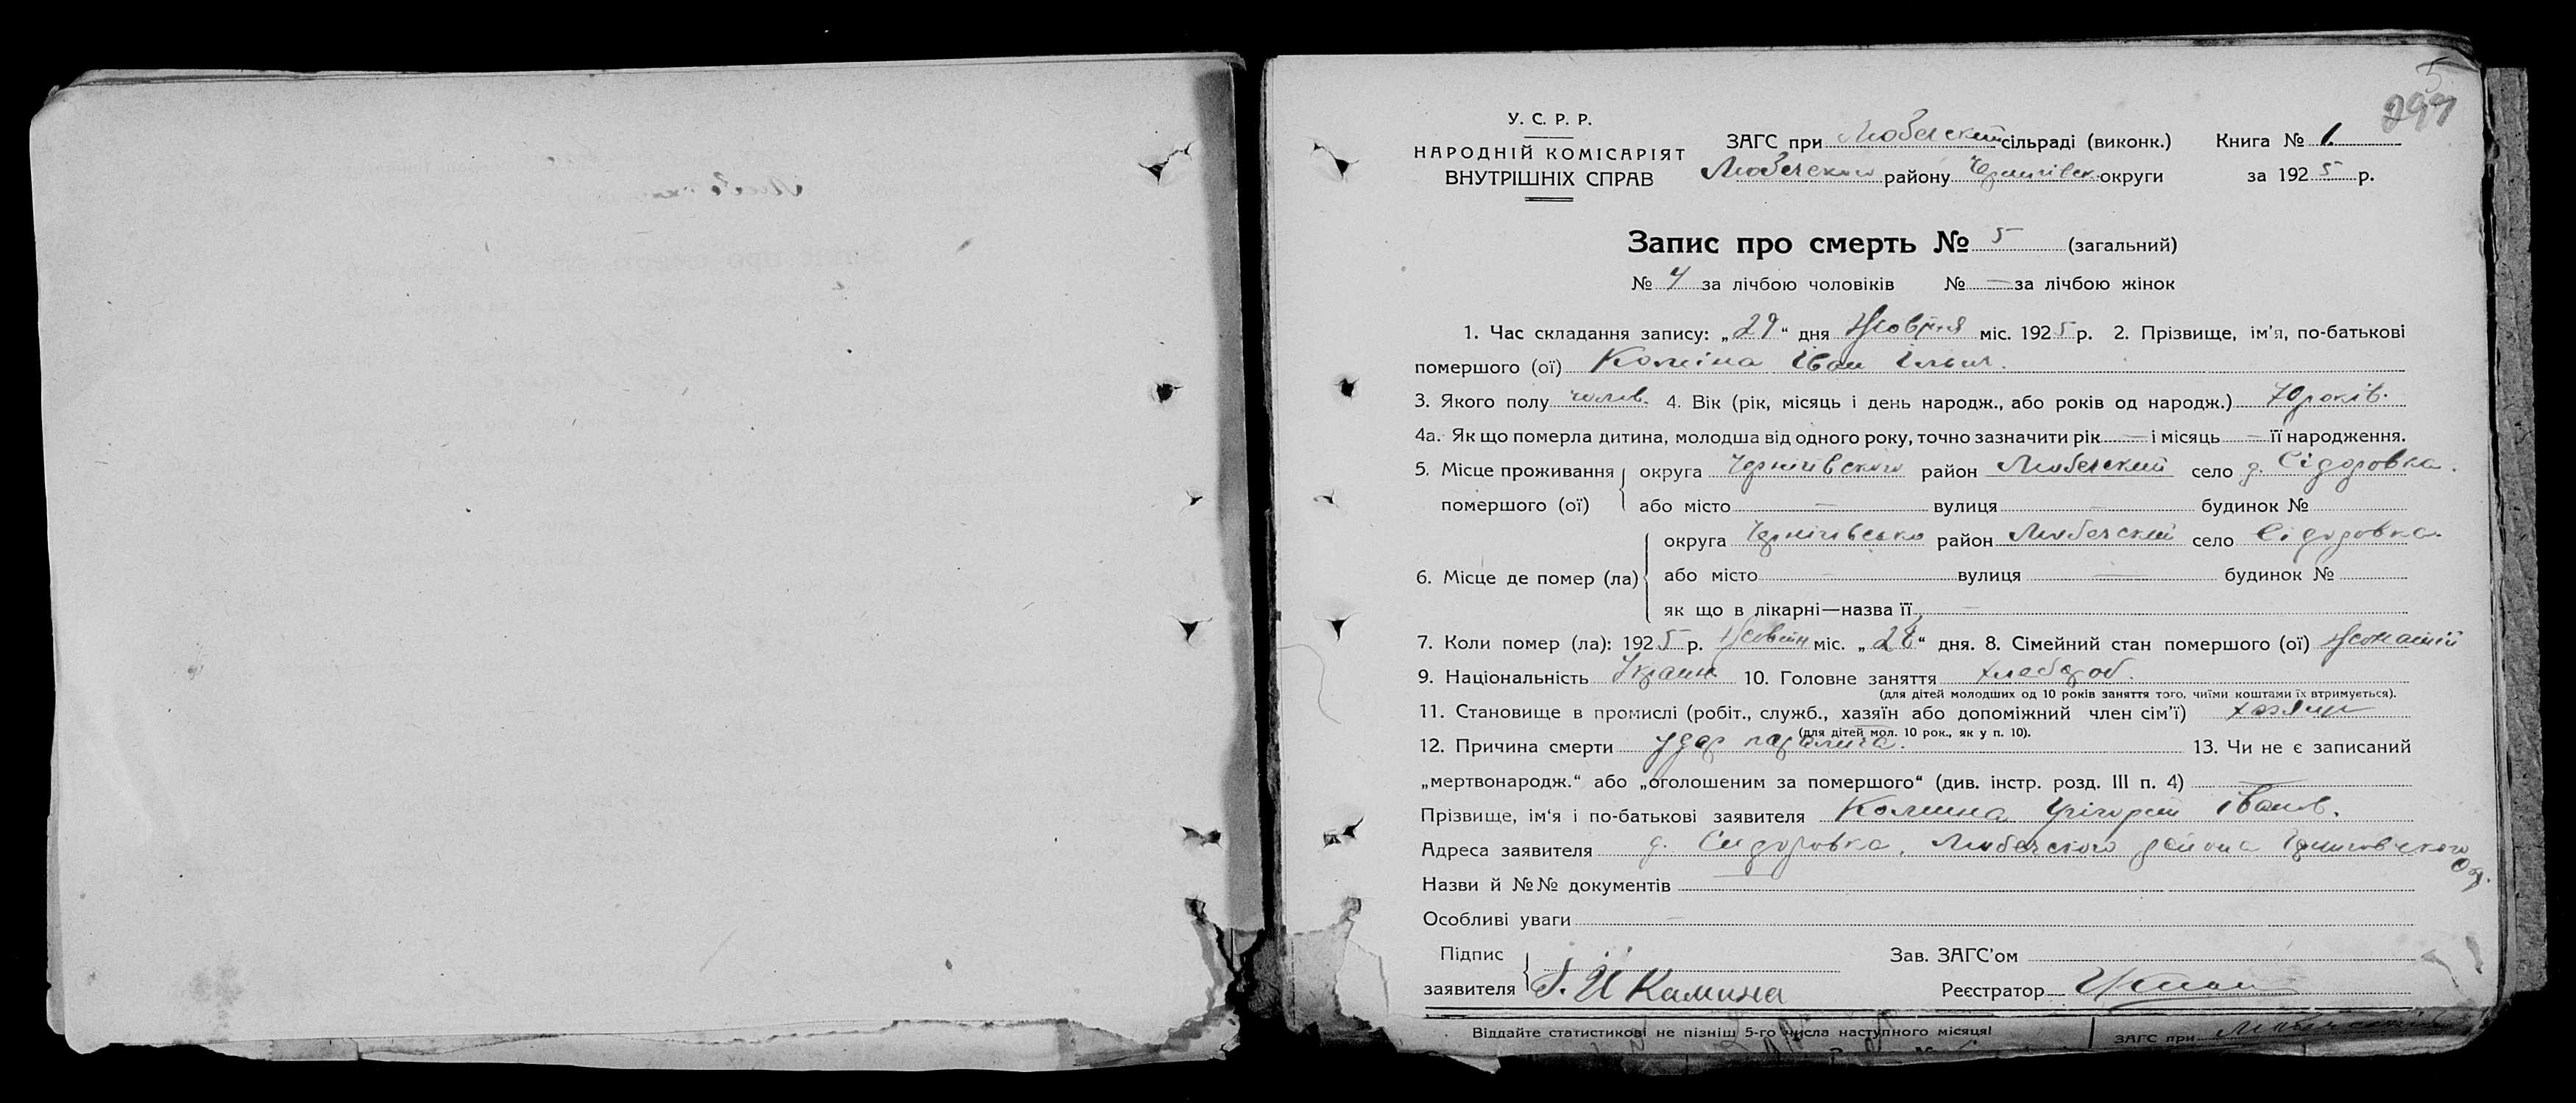 5
297
У. С. Р. Р.
НАРОДНІЙ КОМІСАРІЯТ
ВНУТРІШНІХ СПРАВ
ЗАГС при Любечский сільраді (виконк.) Книга № 1.
Любечского району Чернігівск округи за 1925 р.
Запис про смерть № 5 (загальний)
№ 4 за лічбою чоловіків № — за лічбою жінок
1. Час складання запису: „29“ дня Жовтня міс. 1925 р. 2. Прізвище, ім’я, по-батькові
помершого (ої) Коміна Іван Ільич.
3. Якого полу чолов. 4. Вік (рік, місяць і день народж., або років од народж.) 70 років.
4а. Як що померла дитина, молодша від одного року, точно зазначити рік — і місяць — її народження.
5. Місце проживання округа Чернігівского район Любечский село д. Сідоровка.
помершого (ої) або місто — вулиця — будинок №
округа Чернігівсько район Любечский село Сідоровка.
6. Місце де помер (ла) або місто — вулиця — будинок №
як що в лікарні—назва її —
7. Коли помер (ла): 1925 р. Жовтн міс. „28“ дня. 8. Сімейний стан помершого (ої) жонатий
9. Національність Украин 10. Головне заняття хлебороб.
(для дітей молодших од 10 років заняття того, чиїми коштами їх втримується).
11. Становище в промислі (робіт., служб., хазяїн або допоміжний член сім’ї) хазяин
(для дітей мол. 10 рок., як у п. 10).
12. Причина смерти удар паралича. 13. Чи не є записаний
„мертвонародж.“ або „оголошеним за помершого“ (див. інстр. розд. III п. 4) —
Прізвище, ім’я і по-батькові заявителя Комина Грігорий Іванов.
Адреса заявителя д. Сидоровка, Любечского району Черниговского
Окр.
Назви й №№ документів —
Особливі уваги —
Підпис Зав. ЗАГС’ом
заявителя Г. И Камина Реєстратор
Віддайте статистикові не пізніш 5-го числа наступного місяця! ЗАГС при Любечский